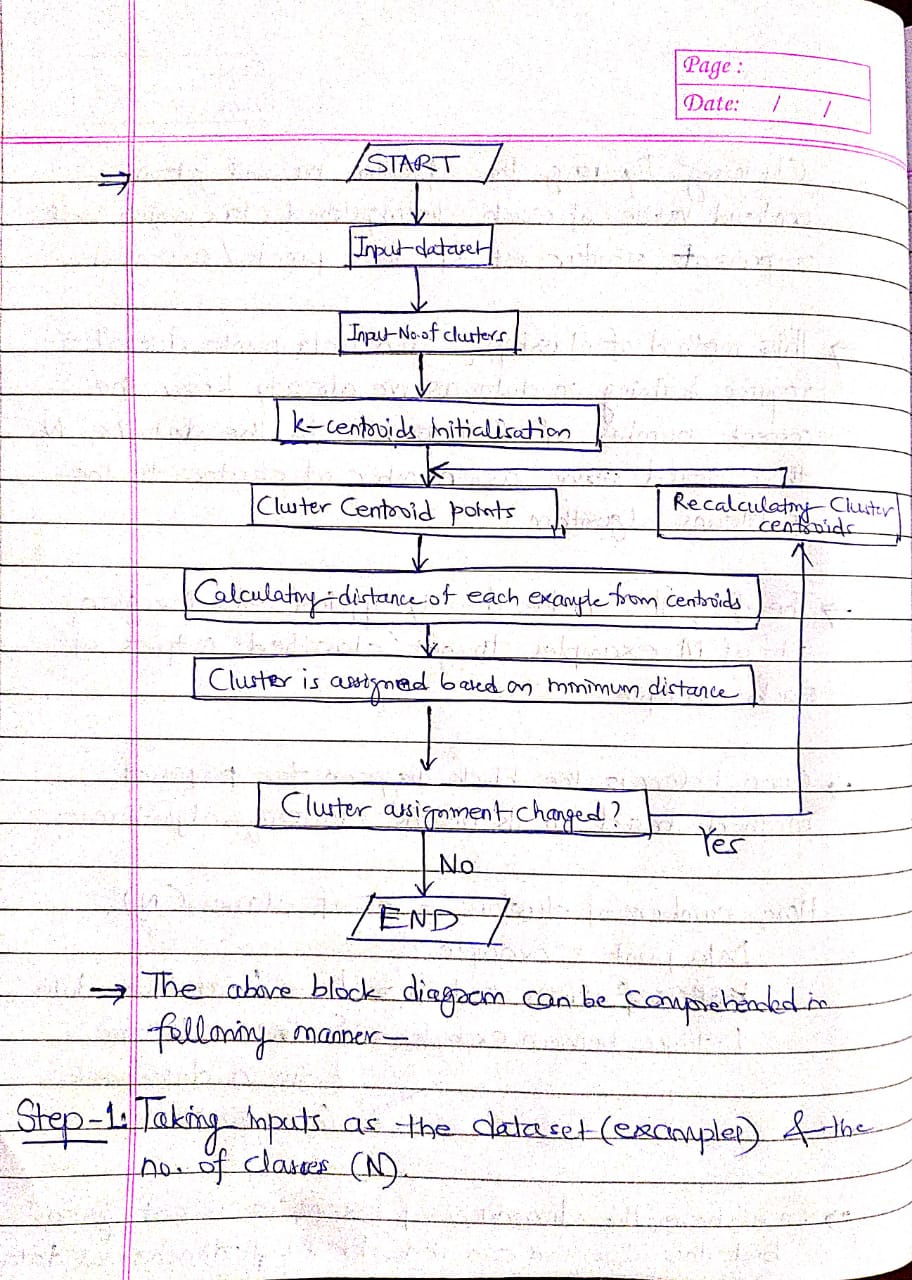 Page :
Date: / /
⇒ START
Input dataset
Input No. of clusters
k-centroids Initialisation
Cluster Centroid points
Recalculating Cluster
centroids
Calculating distance of each example from centroids
Cluster is assigned based on minimum distance
Cluster assignment changed?
Yes
No
END
→ The above block diagram can be comprehended in
following manner—
Step-1: Taking inputs as the dataset (examples) & the
no. of classes (N).